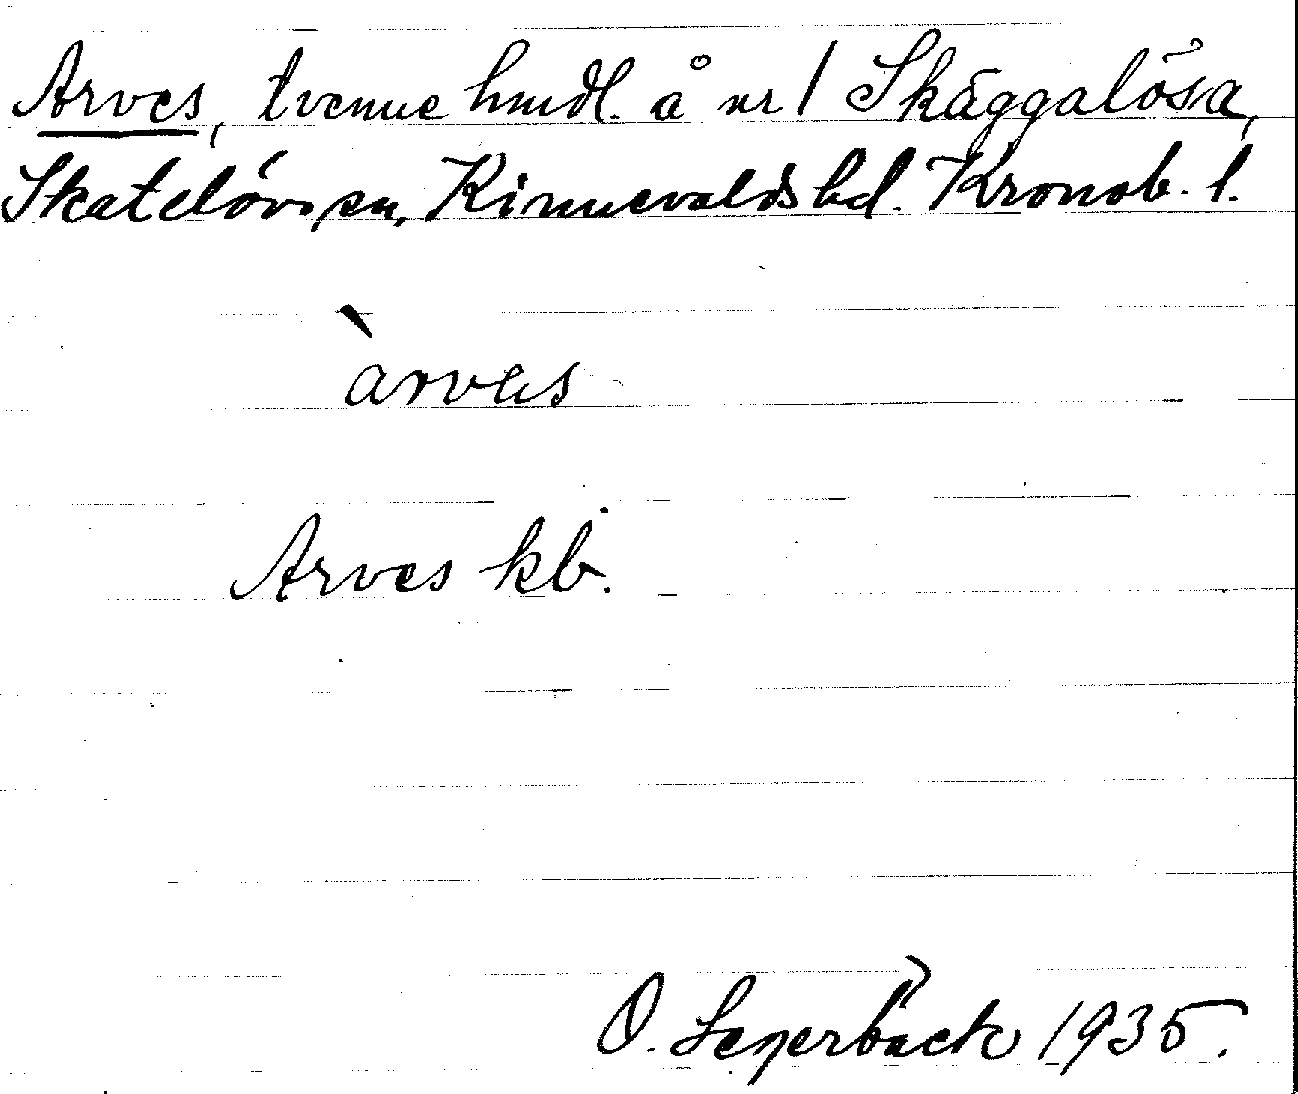 Arves, tvenne hmdl. å nr 1 Skäggalösa,
Skatelövs sn, Kinnevalds hd. Kronob. l.
àrvəs
Arves kb.
O. Seyerbäck 1935.